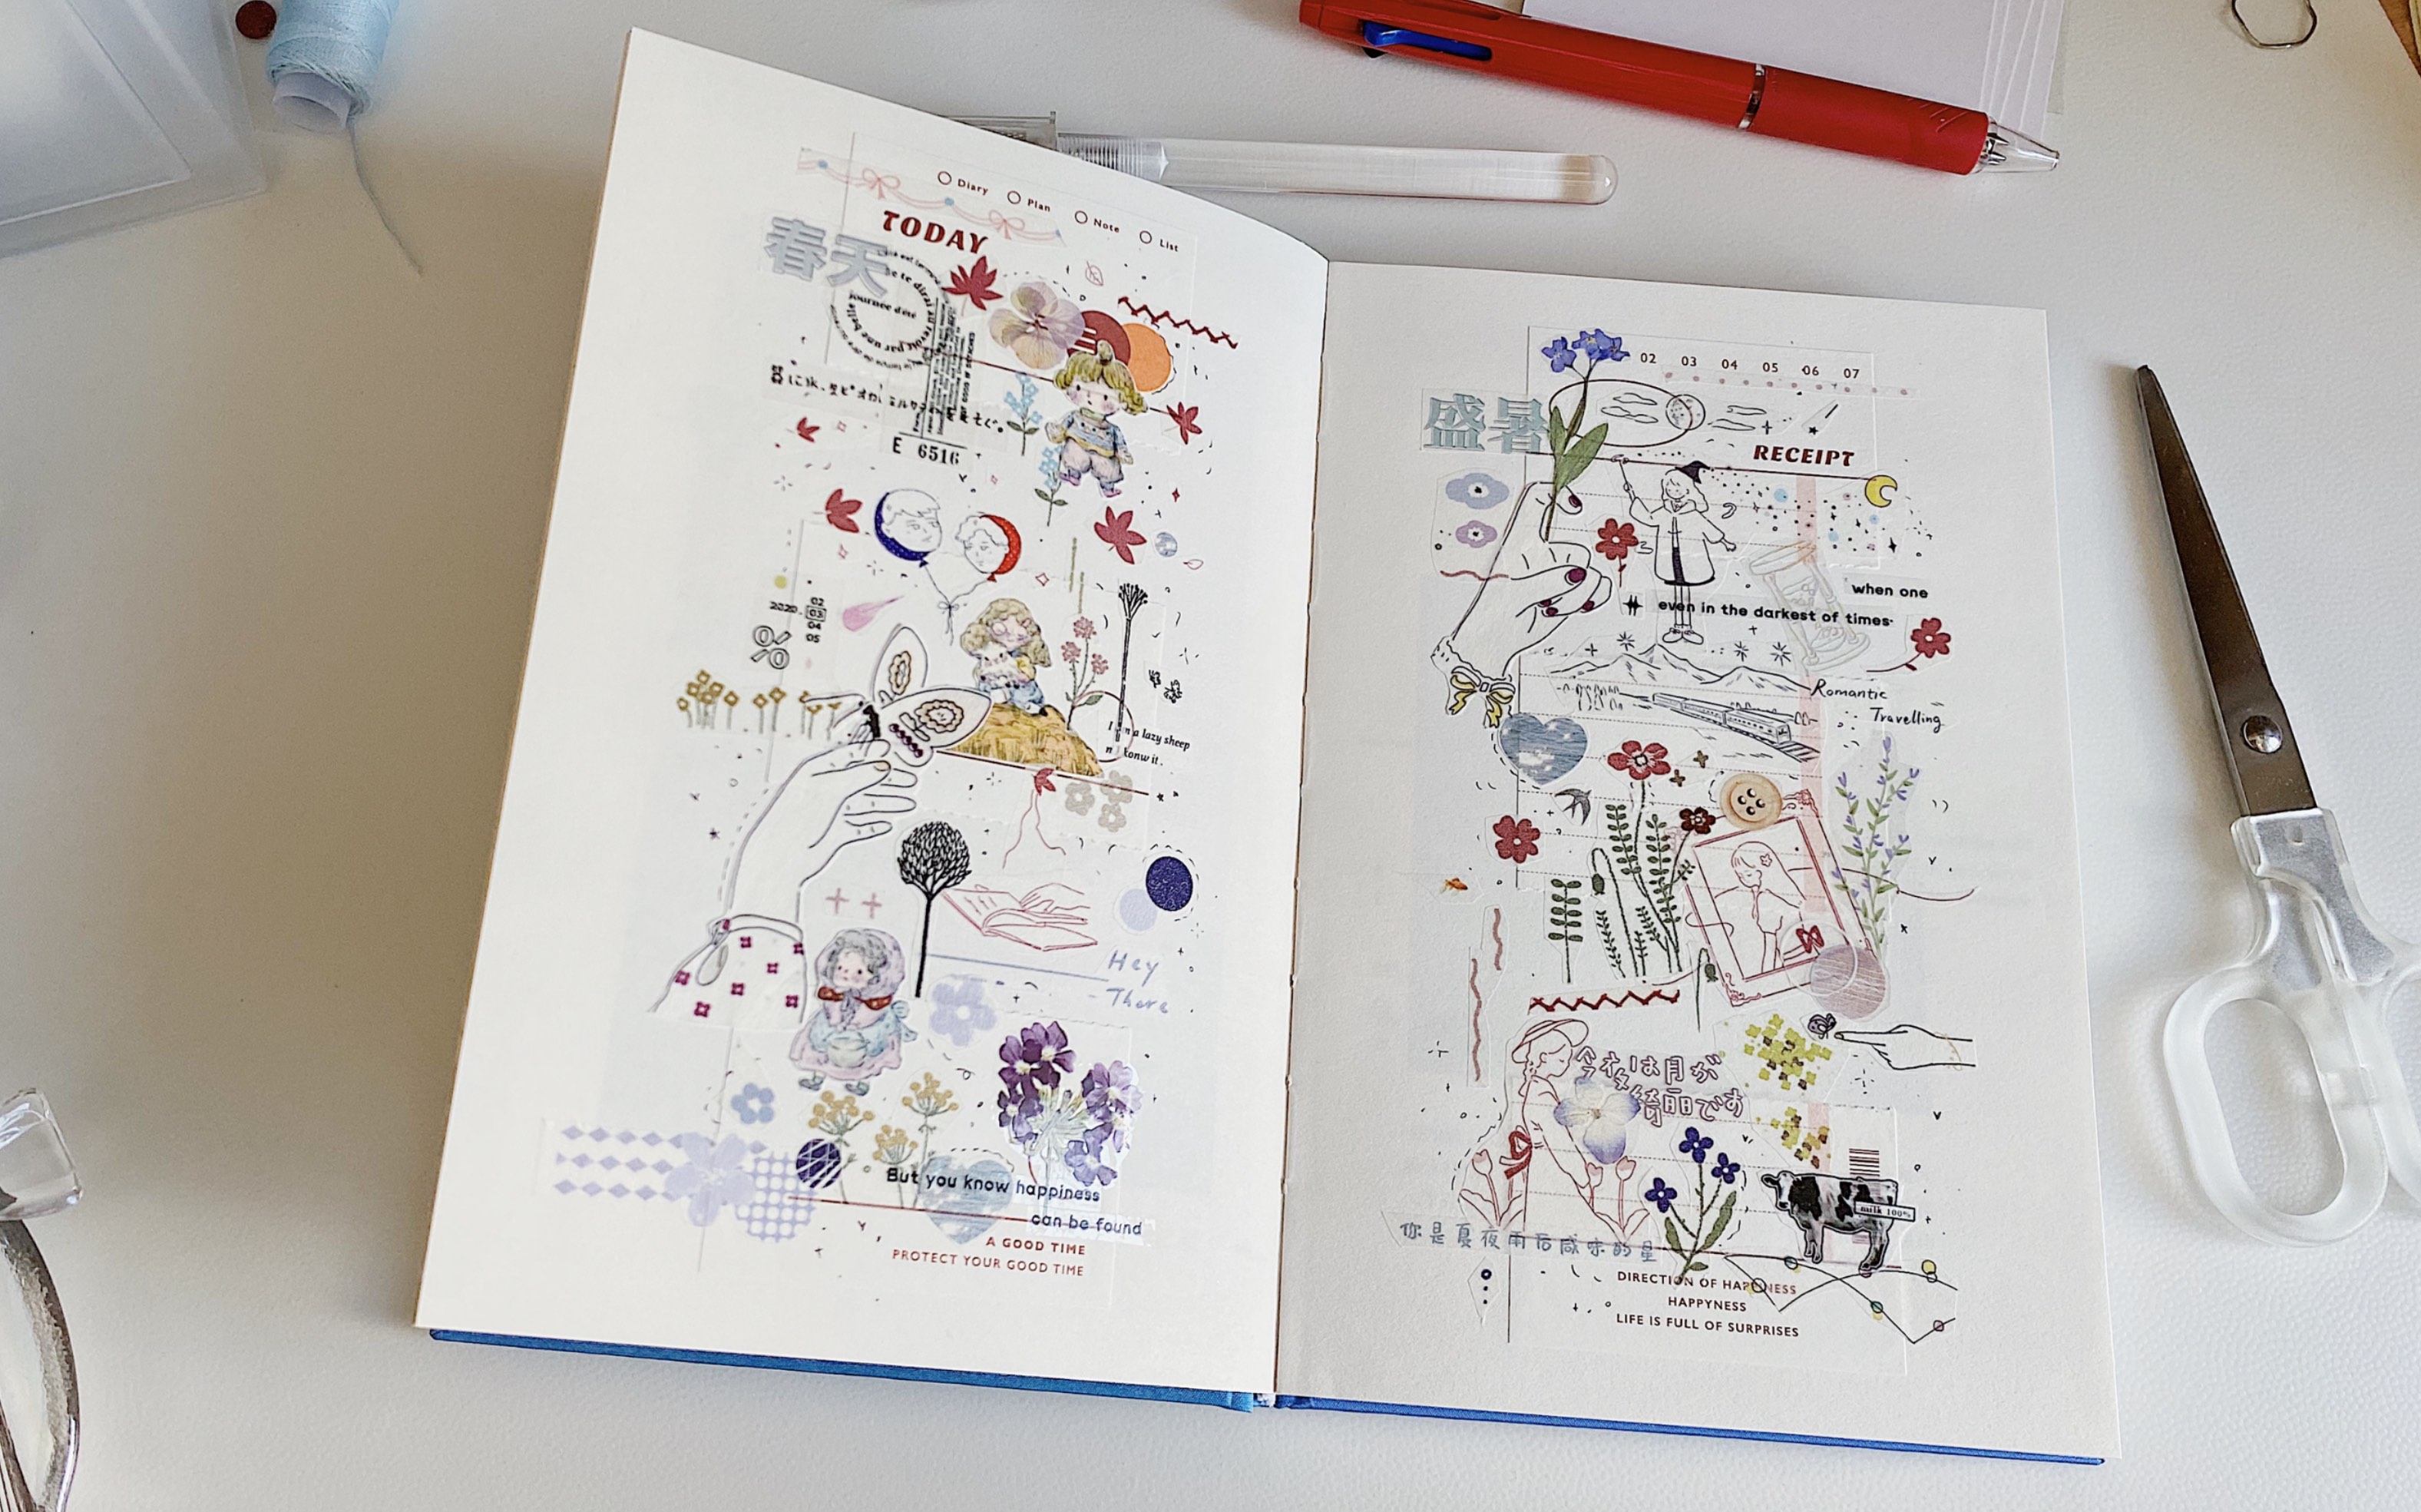 Diary Plan Note List
TODAY
春天
journée d'été
E 6516
2020. 02
03
04
05
I'm a lazy sheep
konw it.
Hey
There
But you know happiness
can be found
A GOOD TIME
PROTECT YOUR GOOD TIME
02 03 04 05 06 07
盛暑
RECEIPT
when one
even in the darkest of times
Romantic
Travelling
今夜は月が
綺麗です
milk 100%
你是夏夜雨后咸味的星
DIRECTION OF HAPPINESS
HAPPYNESS
LIFE IS FULL OF SURPRISES